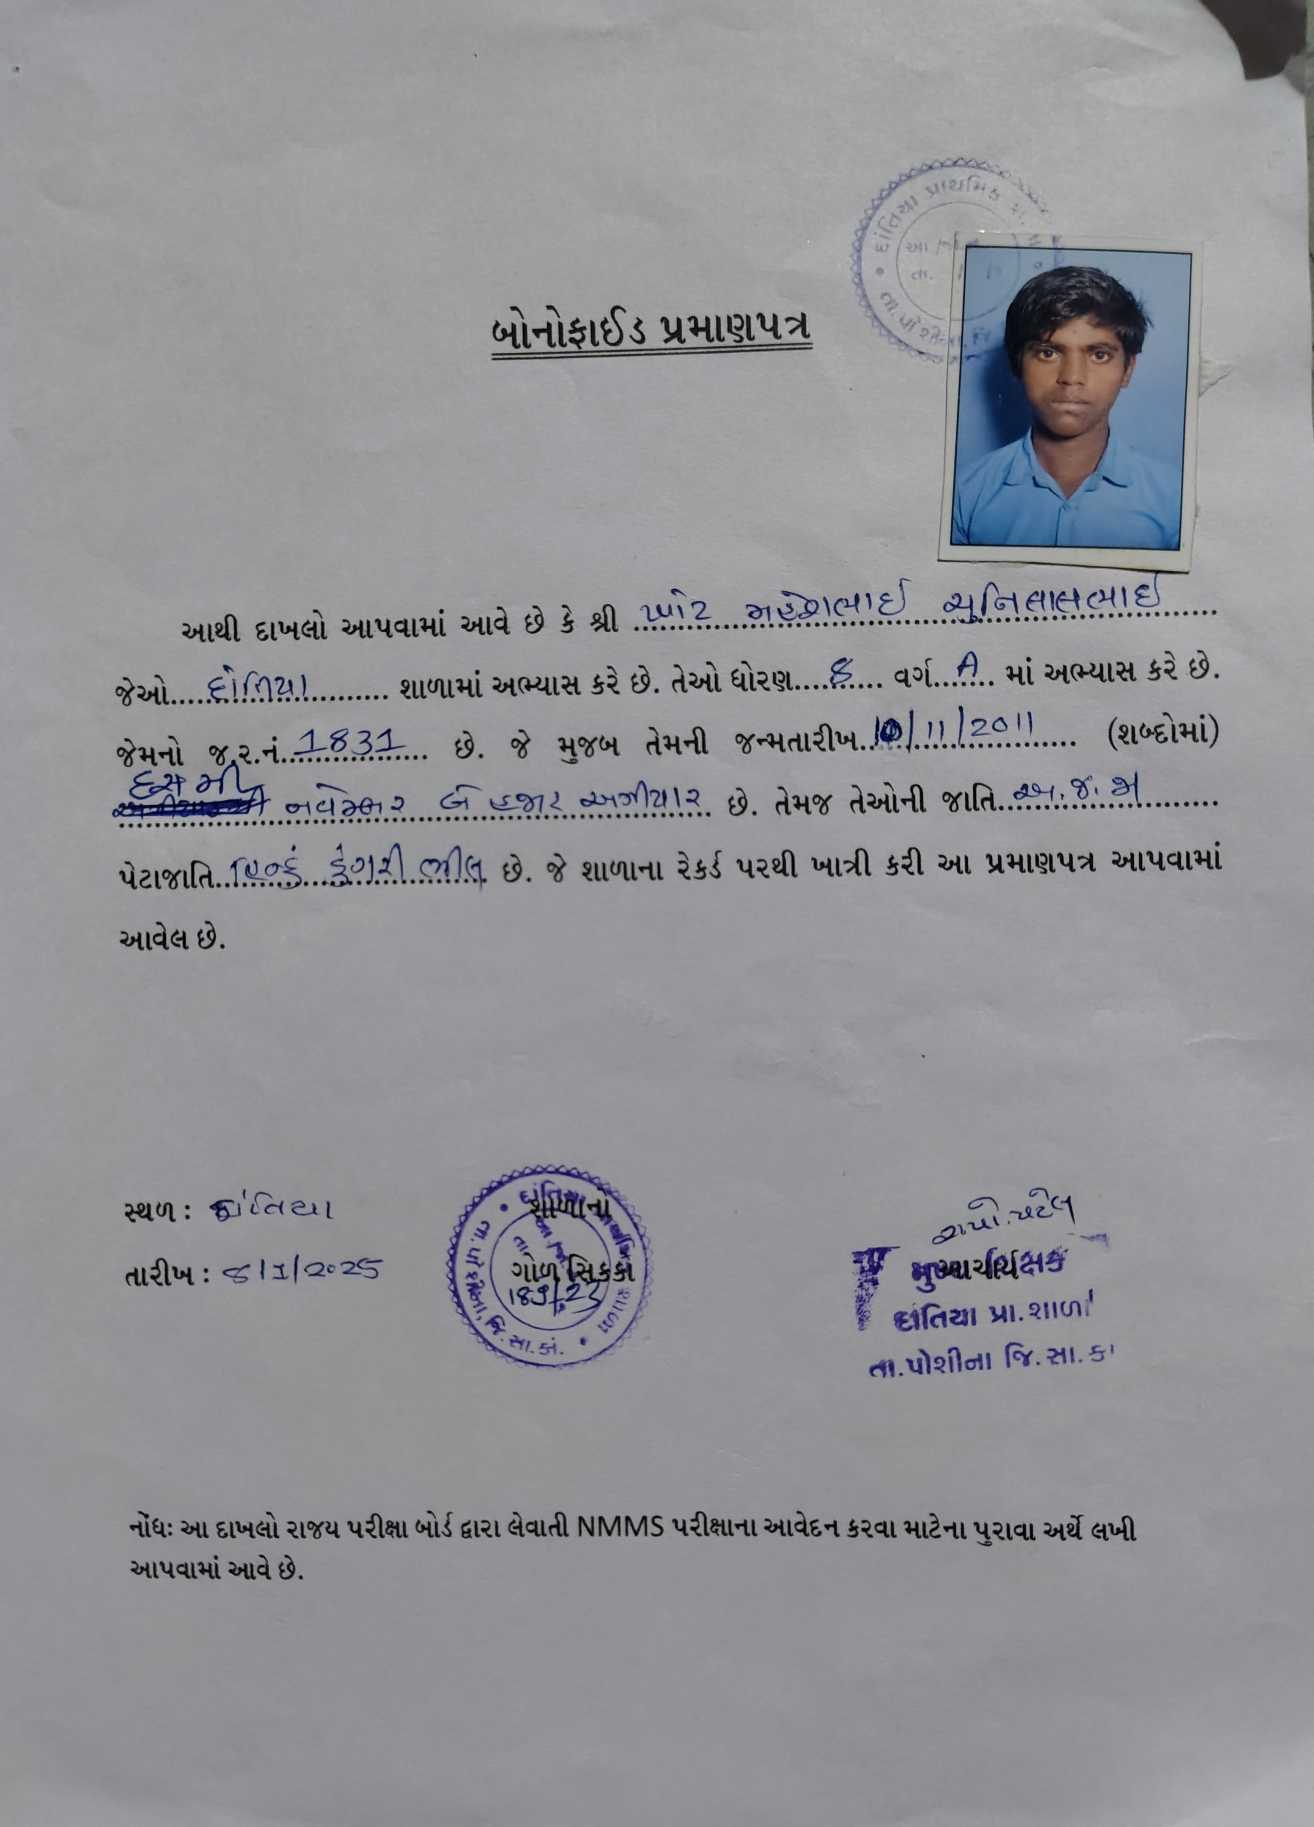 દાંતિયા પ્રાથમિક
બોનોફાઈડ પ્રમાણપત્ર
આથી દાખલો આપવામાં આવે છે કે શ્રી ખોટ મહેશભાઈ ચુનિલાલભાઈ
જેઓ....દાંતિયા.......... શાળામાં અભ્યાસ કરે છે. તેઓ ધોરણ....૮.... વર્ગ....A... માં અભ્યાસ કરે છે.
જેમનો જ.ર.નં..1831... છે. જે મુજબ તેમની જન્મતારીખ..10/11/2011.... (શબ્દોમાં)
દસમી
નવેમ્બર બે હજાર અગીયાર છે. તેમજ તેઓની જાતિ..અ.જ.જા.......
પેટાજાતિ..હિન્દુ ડુંગરી ભીલ છે. જે શાળાના રેકર્ડ પરથી ખાત્રી કરી આ પ્રમાણપત્ર આપવામાં
આવેલ છે.
સ્થળ : દાંતિયા
તારીખ : ૮/1/2025
શાળાનો
ગોળ સિક્કો
તા.પોશીના, જિ.સા.કાં.
મુખ્ય શિક્ષક
દાંતિયા પ્રા.શાળા
તા.પોશીના જિ.સા.કાં
નોંધઃ આ દાખલો રાજય પરીક્ષા બોર્ડ દ્વારા લેવાતી NMMS પરીક્ષાના આવેદન કરવા માટેના પુરાવા અર્થે લખી
આપવામાં આવે છે.